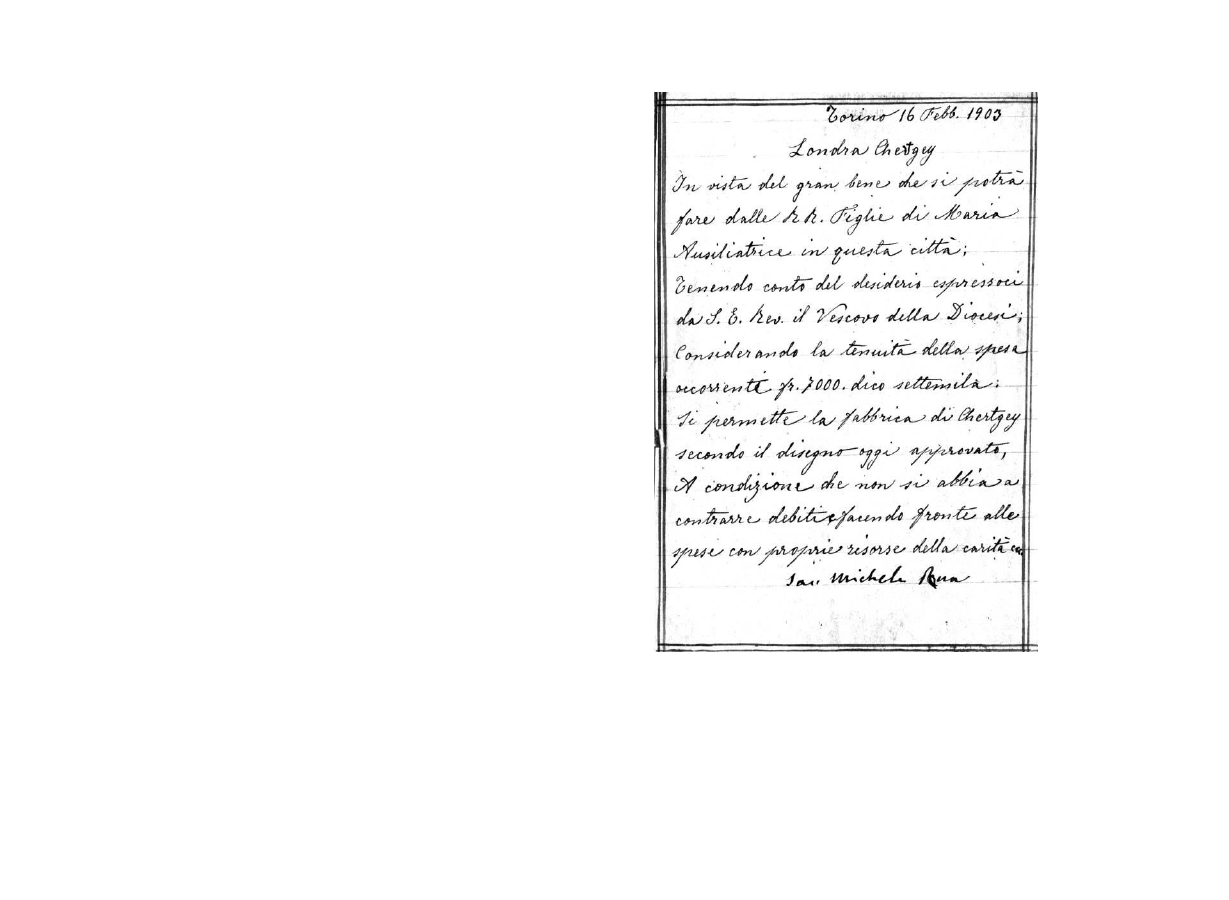 Torino 16 Febb. 1903
Londra Chertgey
In vista del gran bene che si potrà
fare dalle RR. Figlie di Maria
Ausiliatrice in questa città;
Tenendo conto del desiderio espressoci
da S. E. Rev. il Vescovo della Diocesi;
Considerando la tenuità della spesa
occorrente fr. 7000. dico settemila:
Si permette la fabbrica di Chertgey
secondo il disegno oggi approvato,
A condizione che non si abbia a
contrarre debiti e facendo fronte alle
spese con proprie risorse della carità
Sac. Michele Rua